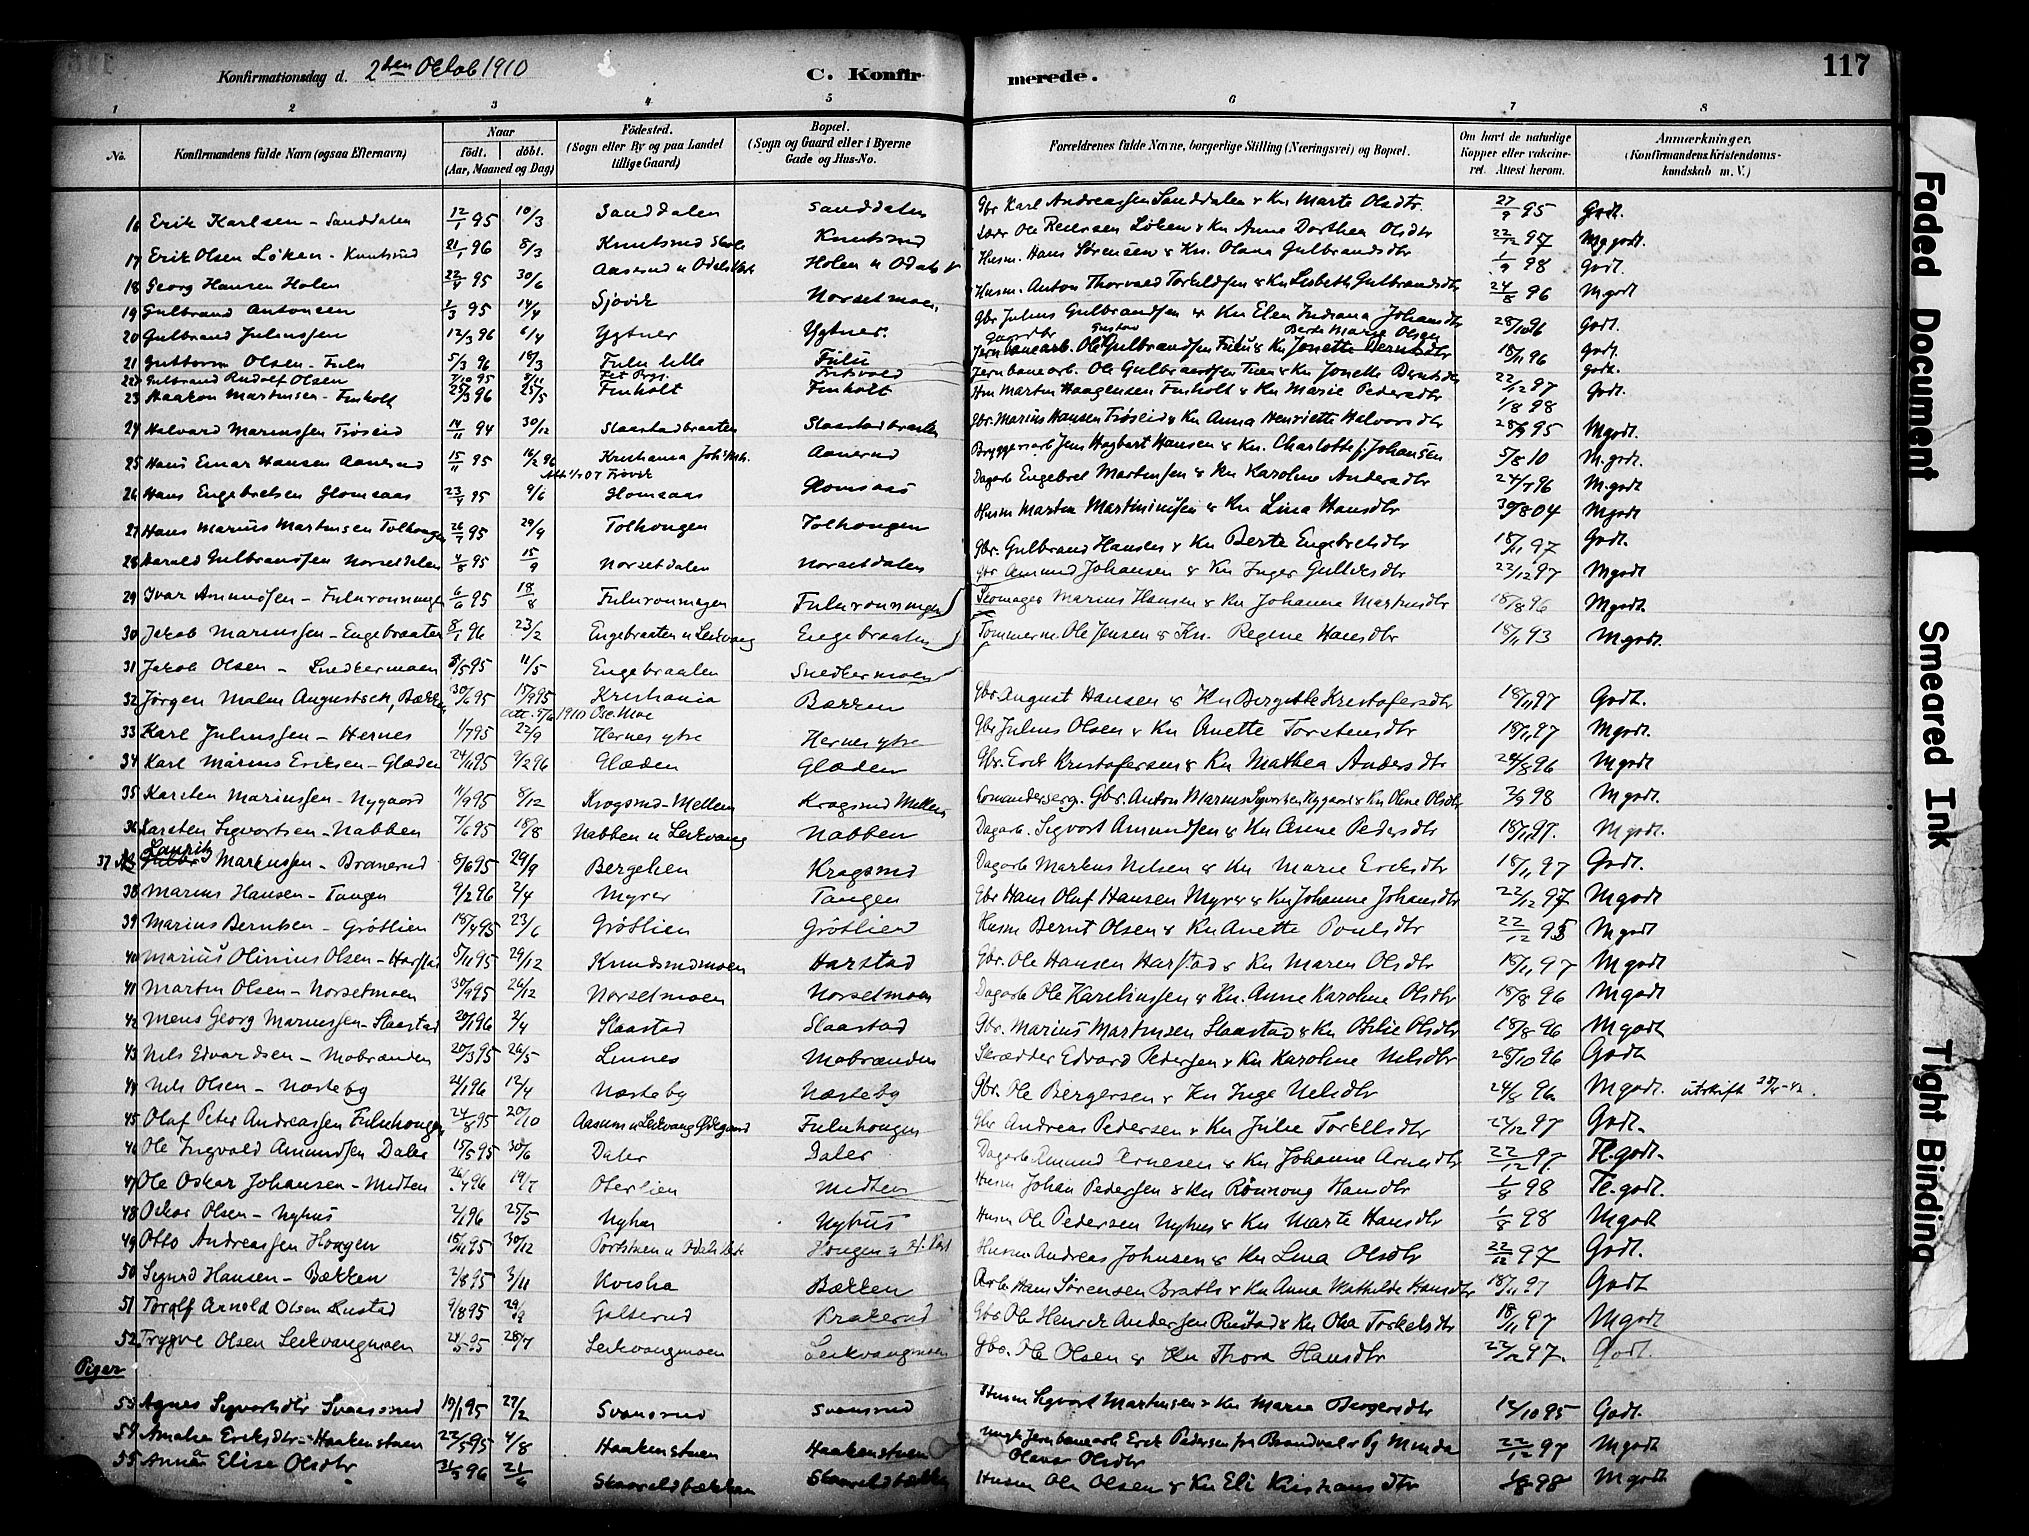 Konfirmationsdag d. 2den Oktob 1910
C. Konfir-
merede.
117
1 2 3 4 5 6 7 8
No.
Konfirmandens fulde Navn (ogsaa Efternavn)
Naar
födt. döbt.
(Aar, Maaned og Dag)
Födested.
(Sogn eller By og paa Landet
tillige Gaard)
Bopæl.
(Sogn og Gaard eller i Byerne
Gade og Hus-No.
Forældrenes fulde Navne, borgerlige Stilling (Næringsvei) og Bopæl.
Om havt de naturlige
Kopper eller vakcine-
ret. Attest herom.
Anmærkninger.
(Konfirmandens Kristendoms-
kundskab m. V.)
16 Erik Karlsen - Sanddalen 12/1 95 10/3 Sanddalen Sanddalen Gbr Karl Andreassen Sanddalen & Kn Marte Olsdtr. 27/9 95 Godt.
17 Erik Olsen Løken - Knutsrud 21/1 96 8/3 Knutsrud Knutsrud Ole Pedersen Løken & Kn Anne Dorthea Olsdtr 22/12 97 Mg godt.
18 Georg Hansen Holen 22/4 95 30/6 Aaserud Holen Husm. Hans Sørensen & Kn. Olana Gulbrandsdtr 1/9 98 Godt.
19 Gulbrand Antonsen 1/3 95 14/4 Sjøvik Norsetmoen Husm. Anton Thorvald Torkildsen & Kn Lisbeth Gulbrandsdtr 24/8 96 Mgodt
20 Gulbrand Juliussen 12/3 96 6/4 Ygtner Ygtner. Gbr Julius Gulbrandsen & Kn Elen Indiana Johansdtr 28/10 96 Godt.
21 Guttorm Olsen - Fulu 5/3 96 18/3 Fulu lille Fulu Gustav Berte Marie Olsen 18/11 96 Godt.
22 Gulbrand Rudolf Olsen 7/10 95 Jernbanearb. Ole Gulbrandsen & Kn Jonette Berntsdtr godt.
23 Haakon Martinsen - Finholt 25/3 96 25/5 Finholt Finholt Hm Martin Haagensen Finholt & Kn Marie Pedersdtr 22/12 97 Godt.
1/8 98
24 Halvard Mariussen Trøseid 14/11 94 30/12 Slaastadbraaten Slaastadbraaten Gbr. Marius Hansen Trøseid & Kn Anna Henriette Halvorsdtr 28/9 95 Mgodt.
25 Hans Einar Hansen Aanerud 15/11 95 16/2 96 Kristiania Joh. Aanerud Bryggeriarb Jens Hagbart Hansen & Kn. Charlotte f. Johansen 5/8 10 M. godt.
26 Hans Engebretsen Glomsaas 23/4 95 9/6 Glomsaas Glomsaas Dagarb Engebret Martinsen & Kn Karoline Andersdtr 24/7 96 M.godt
27 Hans Marius Martinsen Tolhougen 26/7 95 29/9 Tolhougen Tolhougen Husm Martin Martiniusen & Kn Lina Hansdtr 30/8 04 Mgodt
28 Harald Gulbranssen Norsetdalen 4/8 95 15/9 Norsetdalen Norsetdalen Gbr. Gulbrand Hansen & Kn Berte Engebretsdtr 18/11 97 Godt.
29 Ivar Amundsen - Fuluronningen 6/6 95 18/8 Fuluronningen Fuluronningen Gbr Amund Johansen & Kn Inger Gulliksdtr 22/12 97 Mgodt
30 Jakob Mariussen - Engebraaten 8/1 96 23/2 Engebraaten u Leirvang Engebraaten Skomager Marius Hansen & Kn Johanna Martinsdtr 18/8 96 Mgodt
31 Jakob Olsen - Snedkermoen 8/5 95 11/5 Engebraaten Snedkermoen Tømmerm. Ole Jensen & Kn. Regine Hansdtr 18/11 93 Mgodt.
32 Jørgen Malm Augustsen, Bækken 30/6 95 15/9 95 Kristiania Bækken Gbr August Hansen & Kn Bergitte Kristofersdtr 18/11 97 Godt.
att. 5/6 1910
33 Karl Juliussen - Hernes 1/7 95 22/9 Hernes ytre Hernes ytre Gbr Julius Olsen & Kn Anette Torstensdtr 18/11 97 Mgodt.
34 Karl Marius Eriksen - Glæden 24/11 95 9/2 96 Glæden Glæden Gbr. Erik Kristofersen & Kn Mathea Andersdtr 24/8 96 Mgodt
35 Karsten Mariussen - Nygaard 11/9 95 8/12 Kragsrud - Mellem Kragsrud Mellem Gbr. Anton Marius Syvertsen Nygaard & Kn Oline Olsdtr 3/9 98 Mgodt.
36 Karsten Sigvartsen - Nabben 7/6 95 18/8 Nabben u Leirvang Nabben Dagarb. Sigvart Amundsen & Kn Anne Pedersdtr 18/11 97. M godt.
37 Lauritz Markussen - Branerud 5/6 95 29/9 Bergelien Kragsrud Dagarb Markus Nilsen & Kn Marie Eriksdtr 18/11 97 Godt.
38 Marius Hansen - Tangen 9/2 96 2/4 Myrer Tangen Gbr Hans Oluf Hansen Myrer & Kn Johanne Johansdtr 22/12 97 Mgodt
39 Marius Berntsen - Grøtlien 18/4 95 23/6 Grøtlien Grøtlien Husm Bernt Olsen & Kn Anette Poulsdtr 22/12 95 Mgodt
40 Marius Olinius Olsen - Harstad 5/11 95 29/12 Knudsrudmoen Harstad Gbr. Ole Hansen Harstad & Kn Maren Olsdtr 18/11 97 M godt
41 Martin Olsen - Norsetmoen 30/9 95 26/12 Norsetmoen Norsetmoen Dagarb Ole Kareliussen & Kn. Anne Karoline Olsdtr 18/8 96 Mgodt
42 Mens Georg Mariussen - Slaastad 20/1 96 2/4 Slaastad Slaastad Gbr. Marius Martinsen Slaastad & Kn Otilie Olsdtr 18/8 96 Mgodt
43 Nils Edvardsen - Mobrænden 20/3 95 26/5 Linnes Mobrænden Skrædder Edvard Pedersen & Kn Karoline Nilsdtr 28/10 96 Godt
44 Nils Olsen - Næsteby 21/1 96 12/4 Næsteby Næsteby Gbr. Ole Bergersen & Kn Inge Nilsdtr 24/8 96 Mgodt. utskrift
45 Olaf Peter Andreassen Fuluhougen 24/8 95 20/10 Aasum u Leirvang Ødegaard Fuluhougen Gbr Andreas Pedersen & Kn Julie Torkelsdtr 22/12 97 Godt.
46 Ole Ingvald Amundsen Daler 15/5 95 30/6 Daler Daler Dagarb Amund Arnesen & Kn Johanne Arnesdtr 22/12 97 Tl.godt.
47 Ole Oskar Johansen - Midten 26/4 96 19/7 Oterlien Midten Husm Johan Pedersen & Kn Rønnoug Hansdtr 1/8 98 Tl.godt.
48 Oskar Olsen - Nyhus 2/1 96 25/5 Nyhus Nyhus Husm Ole Pedersen Nyhus & Kn Marte Hansdtr 1/8 98 Mgodt
49 Otto Andreassen Hougen 18/11 95 30/12 Hougen Husm Andreas Johnsen & Kn Lina Olsdtr 22/12 97 Godt.
50 Sigurd Hansen - Bækken 2/8 95 3/11 Kvisla Bækken Arb. Hans Sørensen Braths & Kn Anna Mathilde Hansdtr 18/11 97 Godt
51 Torolf Arnold Olsen Rustad 9/8 95 29/9 Galterud Krakerud Gbr Ole Henrik Andersen Rustad & Kn Olea Torkelsdtr 18/11 97 Mgodt
52 Trygve Olsen Leirvangmoen 24/5 95 28/7 Leirvangmoen Leirvangmoen Gbr. Ole Olsen & Kn Thora Hansdtr 22/12 97. Godt.
Piger
53 Agnes Sigvartsdtr Svansrud 19/1 95 27/2 Svansrud Svansrud Husm Sigvart Martinsen & Kn Maria Bergersdtr 12/10 95 Godt.
54 Amalie Eriksdtr - Haakenstuen 22/5 95 4/8 Haakenstuen Haakenstuen Jernbanearb Erik Pedersen fra Brandval & Pg Minda 22/12 97 Mgodt
Olava Olsdtr
55 Anna Elise Olsdtr 31/3 96 21/6 Skaareldbækken Skaareldbækken Husm Ole Olsen & Kn Eli Kristiansdtr 1/8 98 Mgodt
Faded Document
Smeared Ink
Tight Binding